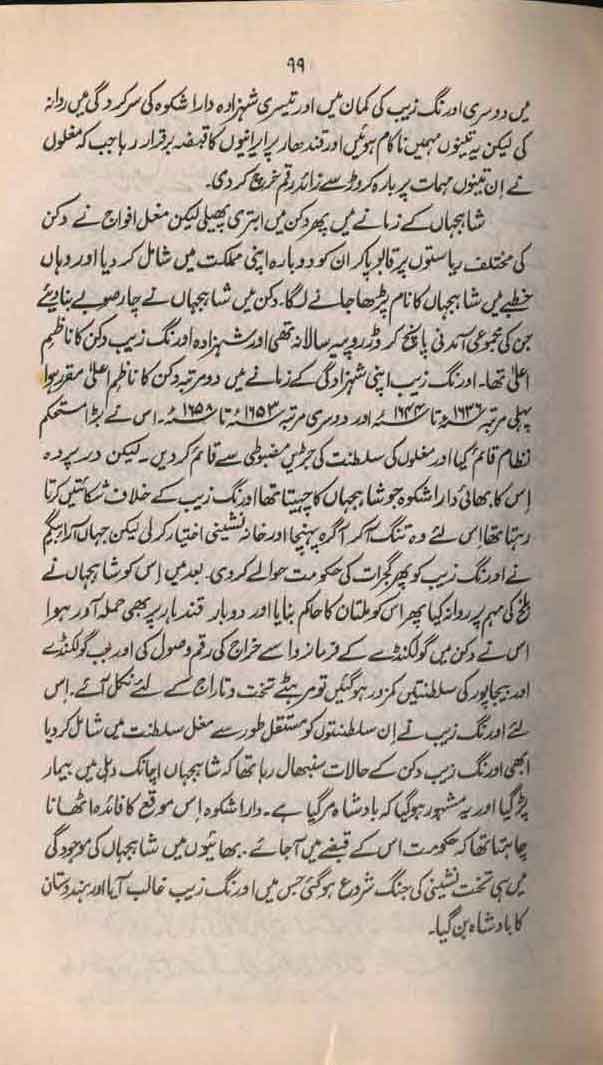 ۹۹
میں دوسری اورنگ زیب کی کمان میں اور تیسری شہزادہ دارا شکوہ کی سرکردگی میں روانہ
کی لیکن یہ تینوں مہمیں ناکام ہوئیں اور قندھار پر ایرانیوں کا قبضہ برقرار رہا جب کہ مغلوں
نے اِن تینوں مہمات پر بارہ کروڑ سے زائد رقم خرچ کردی۔
شاہجہاں کے زمانے میں پھر دکن میں ابتری پھیلی لیکن مغل افواج نے دکن
کی مختلف ریاستوں پر قابو پاکر ان کو دوبارہ اپنی مملکت میں شامل کردیا اور وہاں
خطبے میں شاہجہاں کا نام پڑھا جانے لگا۔ دکن میں شاہجہاں نے چار صوبے بنادیئے
جن کی مجموعی آمدنی پانچ کروڑ روپیہ سالانہ تھی اور شہزادہ اورنگ زیب دکن کا ناظم
اعلیٰ تھا۔ اورنگ زیب اپنی شہزادگی کے زمانے میں دو مرتبہ دکن کا ناظم اعلیٰ مقرر ہوا
پہلی مرتبہ ۱۶۳۶ء تا ۱۶۴۴ء اور دوسری مرتبہ ۱۶۵۳ء تا ۱۶۵۸ء۔ اس نے بڑا مستحکم
نظام قائم کیا اور مغلوں کی سلطنت کی جڑیں مضبوطی سے قائم کردیں۔ لیکن در پردہ
اِس کا بھائی دارا شکوہ جو شاہجہاں کا چہیتا تھا اورنگ زیب کے خلاف شکائتیں کرتا
رہتا تھا اِس لئے وہ تنگ آکر آگرہ پہنچا اور خانہ نشینی اختیار کرلی لیکن جہاں آرا بیگم
نے اورنگ زیب کو پھر گجرات کی حکومت حوالے کردی۔ بعد میں اِس کو شاہجہاں نے
بلخ کی مہم پر روانہ کیا پھر اس کو ملتان کا حاکم بنایا اور دوبار قندہار پر بھی حملہ آور ہوا
اس نے دکن میں گولکنڈے کے فرمانروا سے خراج کی رقم وصول کی اور جب گولکنڈے
اور بیجاپور کی سلطنتیں کمزور ہوگئیں تو مرہٹے تخت و تاراج کے لئے نکل آئے۔ اِس
لئے اورنگ زیب نے اِن سلطنتوں کو مستقل طور سے مغل سلطنت میں شامل کردیا
ابھی اورنگ زیب دکن کے حالات سنبھال رہا تھا کہ شاہجہاں اچانک دہلی میں بیمار
پڑگیا اور یہ مشہور ہوگیا کہ بادشاہ مرگیا ہے۔ دارا شکوہ اِس موقع کا فائدہ اٹھانا
چاہتا تھا کہ حکومت اس کے قبضے میں آجائے۔ بھائیوں میں شاہجہاں کی موجودگی
میں ہی تخت نشینی کی جنگ شروع ہوگئی جس میں اورنگ زیب غالب آیا اور ہندوستان
کا بادشاہ بن گیا۔